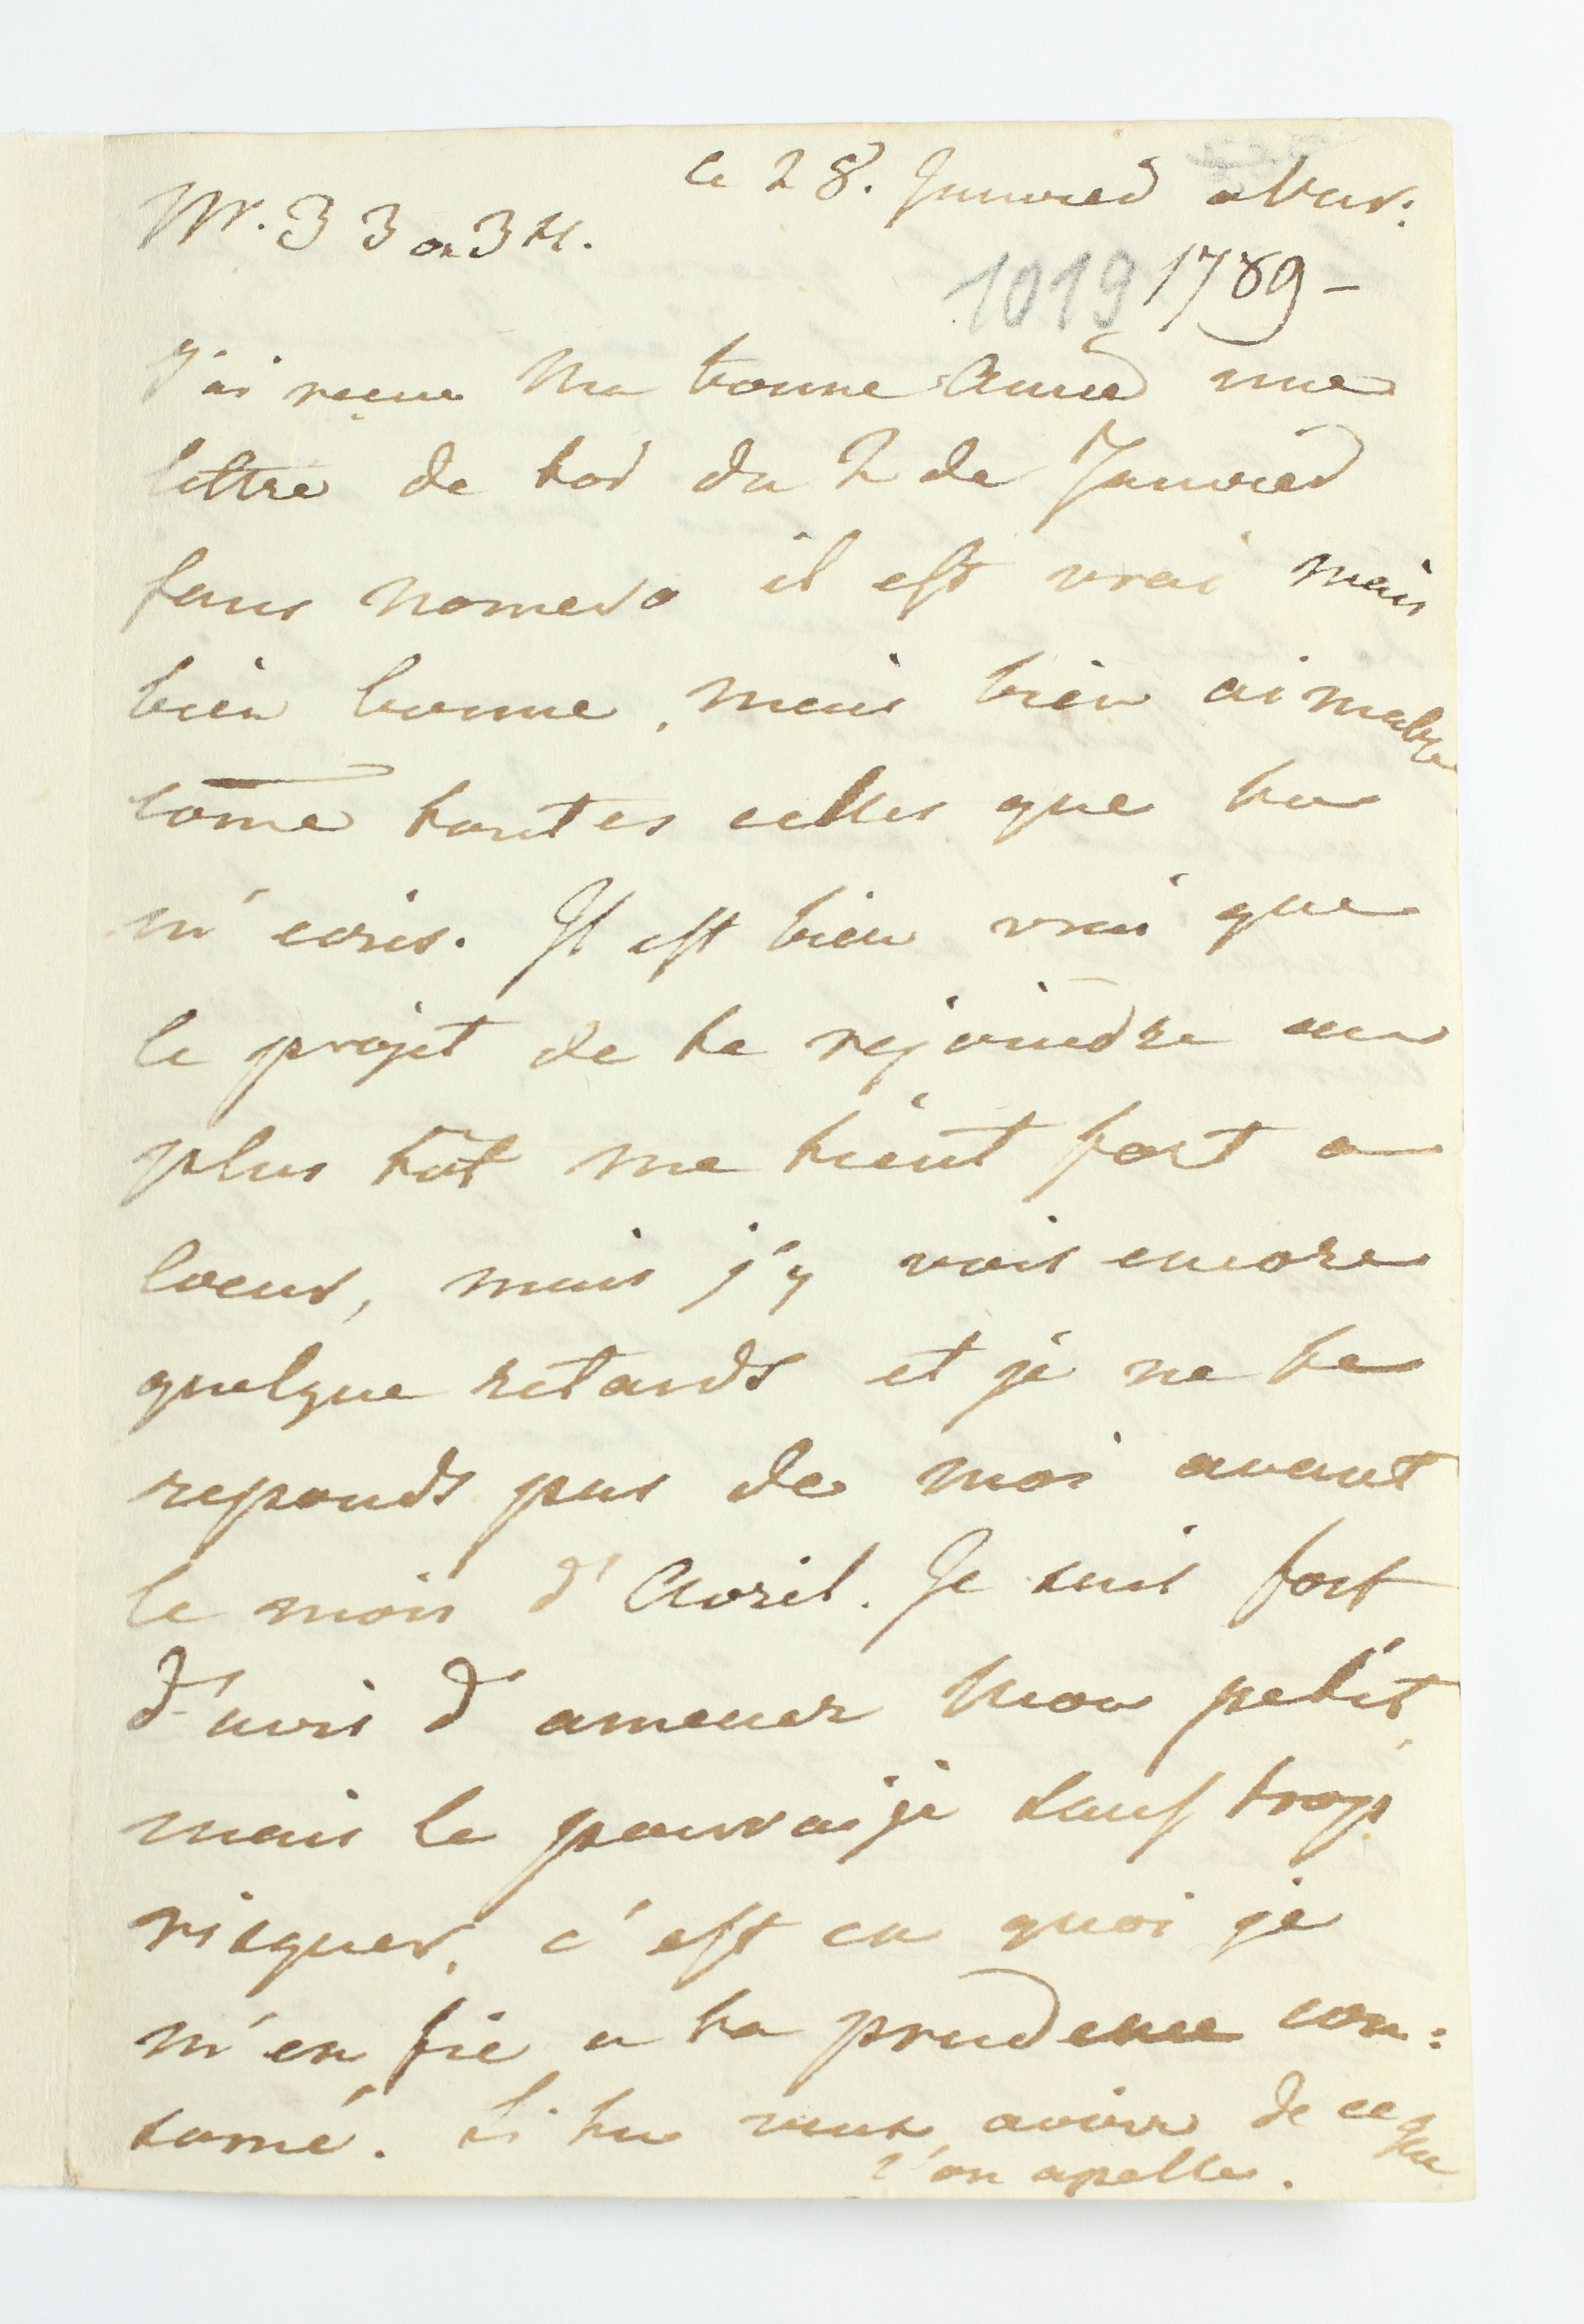 ce 28. Janvier a Vars:
Nr. 33 ou 34.
1019 1789 -
J'ai reçue Ma bonne Amie une
lettre de toi du 2 de Janvier
sans nomero il est vrai mais
bien bonne, mais bien aimable
come toutes celles que tu
m'ecris. Il est bien vrai que
le projet de te rejoindre au
plus tôt me tient fort a
coeur, mais j'y vois encore
quelque retards et je ne te
reponds pas de moi avant
le mois d'Avril. Je suis fort
d'avis d'amener Mon petit,
mais le pourrai je sauf trop
risquer, c'est en quoi je
m'en fie a ta prudence con:
somé. Si tu veux avoir de ce que
l'on apelle.